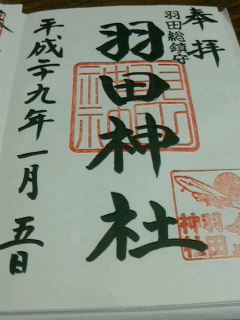 奉拝
羽田総鎮守
羽田神社
平成二十九年一月五日
羽田
神社